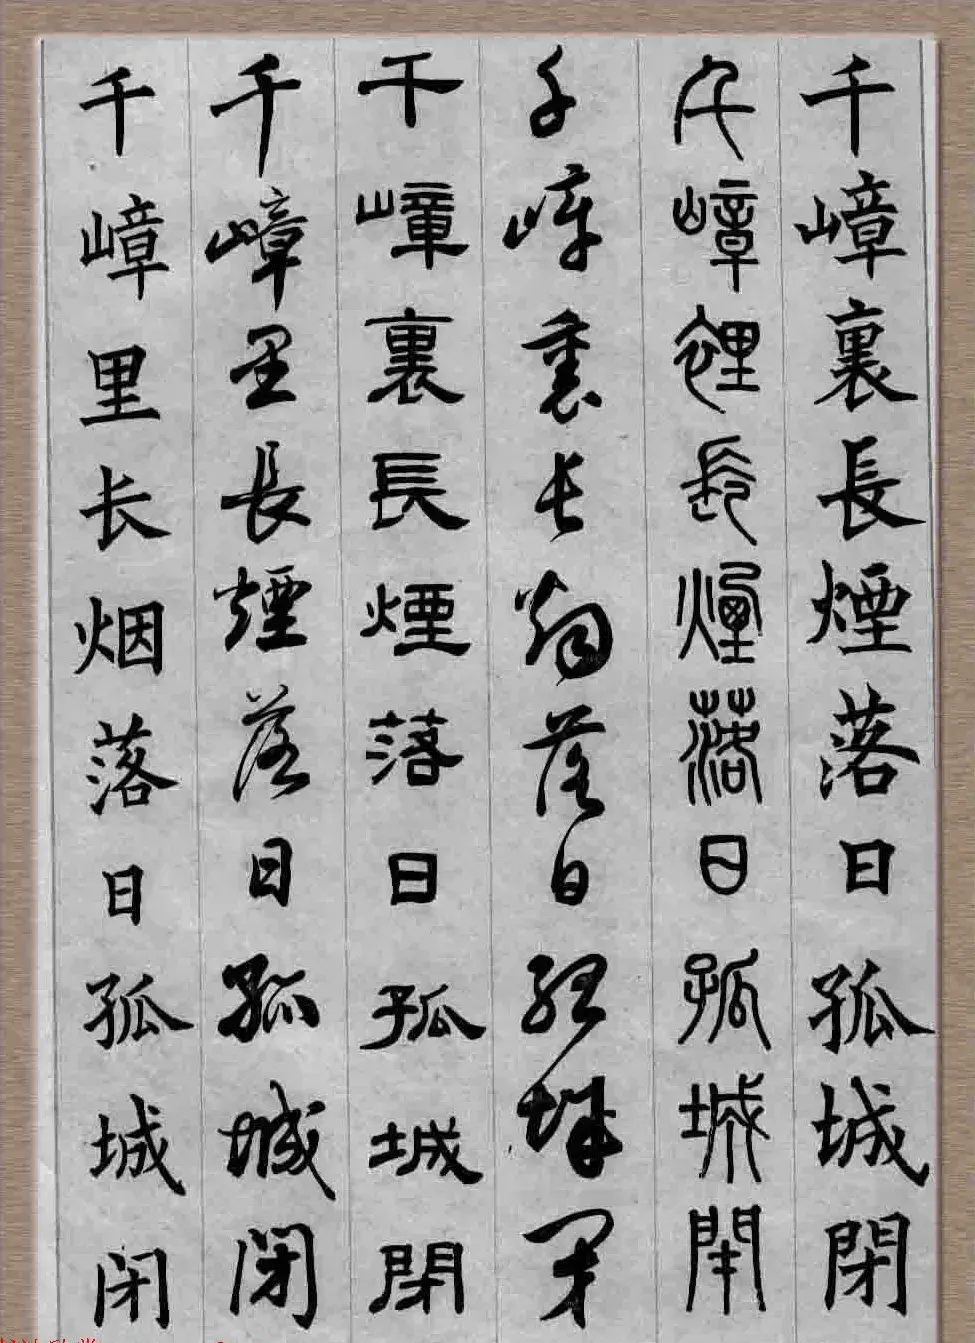 千嶂裏長煙落日孤城閉
千嶂裡長煙落日孤城閉
千嶂裏長煙落日孤城閉
千嶂裏長煙落日孤城閉
千嶂里長煙落日孤城闭
千嶂里长烟落日孤城闭